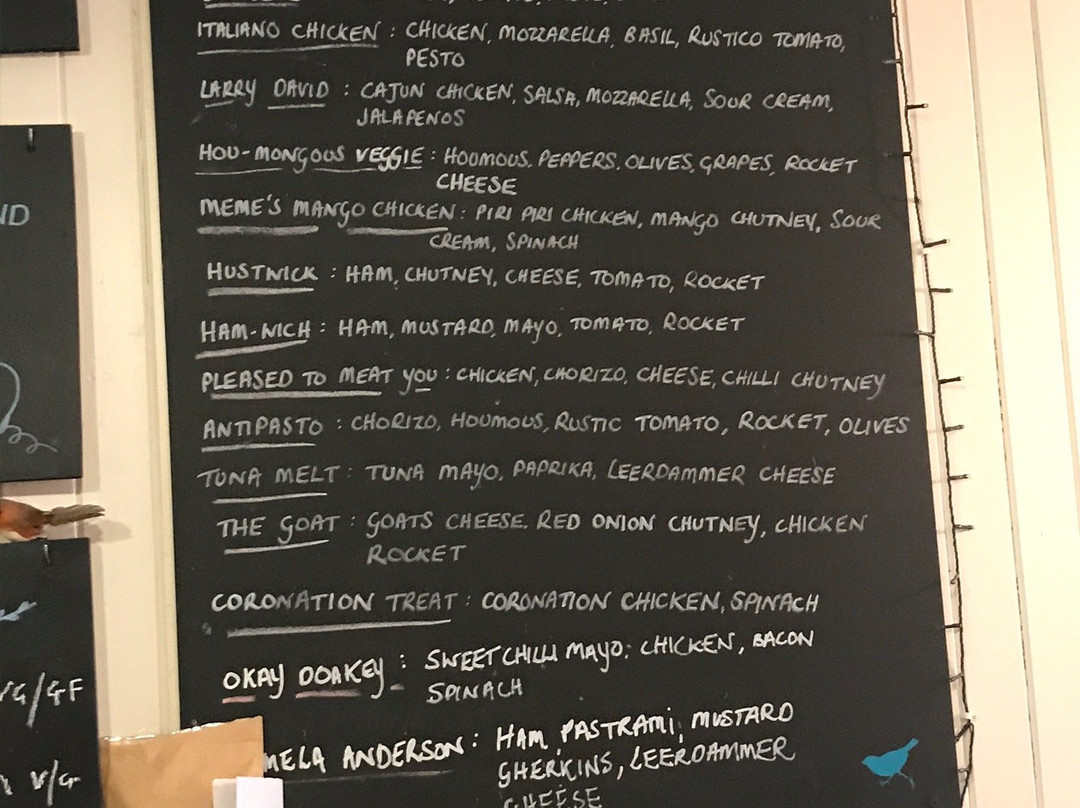 ITALIANO CHICKEN : CHICKEN, MOZZARELLA, BASIL, RUSTICO TOMATO,
PESTO
LARRY DAVID : CAJUN CHICKEN, SALSA, MOZZARELLA, SOUR CREAM,
JALAPENOS
HOU-MONGOUS VEGGIE : HOUMOUS. PEPPERS. OLIVES, GRAPES, ROCKET
CHEESE
MEME'S MANGO CHICKEN : PIRI PIRI CHICKEN, MANGO CHUTNEY, SOUR
CREAM, SPINACH
HUSTWICK : HAM, CHUTNEY, CHEESE, TOMATO, ROCKET
HAM-WICH : HAM, MUSTARD, MAYO, TOMATO, ROCKET
PLEASED TO MEAT YOU : CHICKEN, CHORIZO, CHEESE, CHILLI CHUTNEY
ANTIPASTO : CHORIZO, HOUMOUS, RUSTIC TOMATO, ROCKET, OLIVES
TUNA MELT : TUNA MAYO, PAPRIKA, LEERDAMMER CHEESE
THE GOAT : GOATS CHEESE. RED ONION CHUTNEY, CHICKEN
ROCKET
CORONATION TREAT : CORONATION CHICKEN, SPINACH
OKAY DOAKEY : SWEET CHILLI MAYO, CHICKEN, BACON
SPINACH
MELA ANDERSON : HAM, PASTRAMI, MUSTARD
GHERKINS, LEERDAMMER
CHEESE
ND
VG/GF
V/G